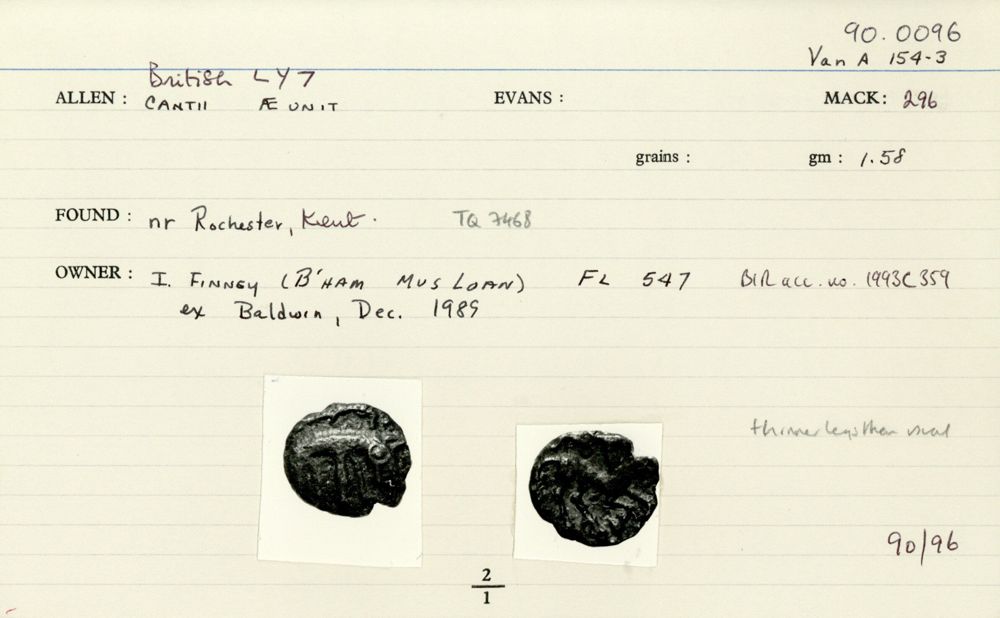 90.0096
Van A 154-3
British LY7
ALLEN : CANTII Æ UNIT EVANS : MACK: 296
grains : gm : 1.58
FOUND : nr Rochester, Kent. TQ 7468
OWNER : I. FINNEY (B'HAM MUS LOAN) FL 547 BIR acc. no. 1993C359
ex Baldwin, Dec. 1989
thinner legs than usual
90/96
2
1